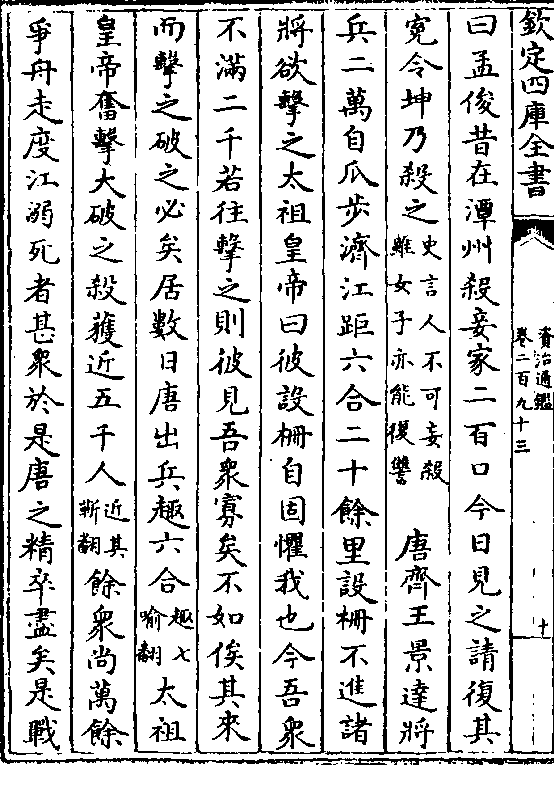 欽定四庫全書
資治通鑑
卷二百九十三
十
曰孟俊昔在潭州殺妾家二百口今日見之請復其
寃令坤乃殺之史言人不可妄殺雖女子亦能復讐 唐齊王景達將
兵二萬自瓜步濟江距六合二十餘里設柵不進諸
將欲擊之太祖皇帝曰彼設柵自固懼我也今吾衆
不滿二千若往擊之則彼見吾衆寡矣不如俟其來
而擊之破之必矣居數日唐出兵趣六合趣七喻翻太祖
皇帝奮擊大破之殺獲近五千人近其靳翻餘衆尚萬餘
爭舟走度江溺死者甚衆於是唐之精卒盡矣是戰